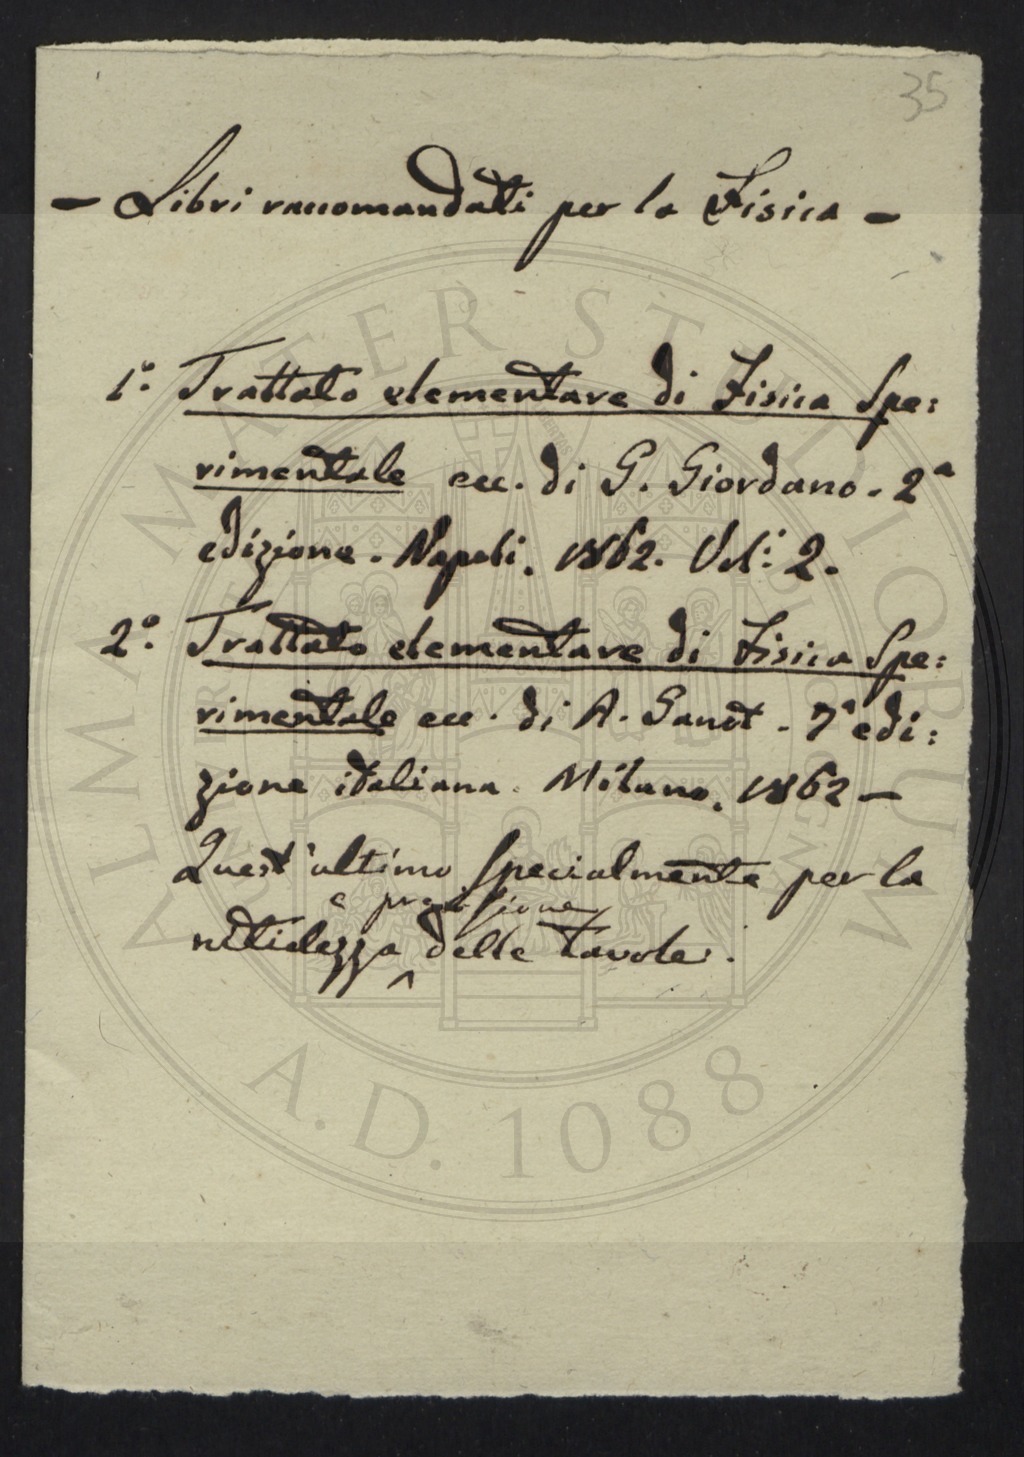 35
– Libri raccomandati per la Fisica –
1.° Trattato elementare di Fisica Spe:
rimentale ecc. di G. Giordano. 2ª
edizione. Napoli. 1862. Vol.i 2.
2.° Trattato elementare di Fisica Spe:
rimentale ecc. di A. Ganot. 7ª edi:
zione italiana. Milano. 1862 –
Quest'ultimo specialmente per la
e precisione
nitidezza ^ delle tavole.
ALMA MATER STUDIORUM
A.D. 1088